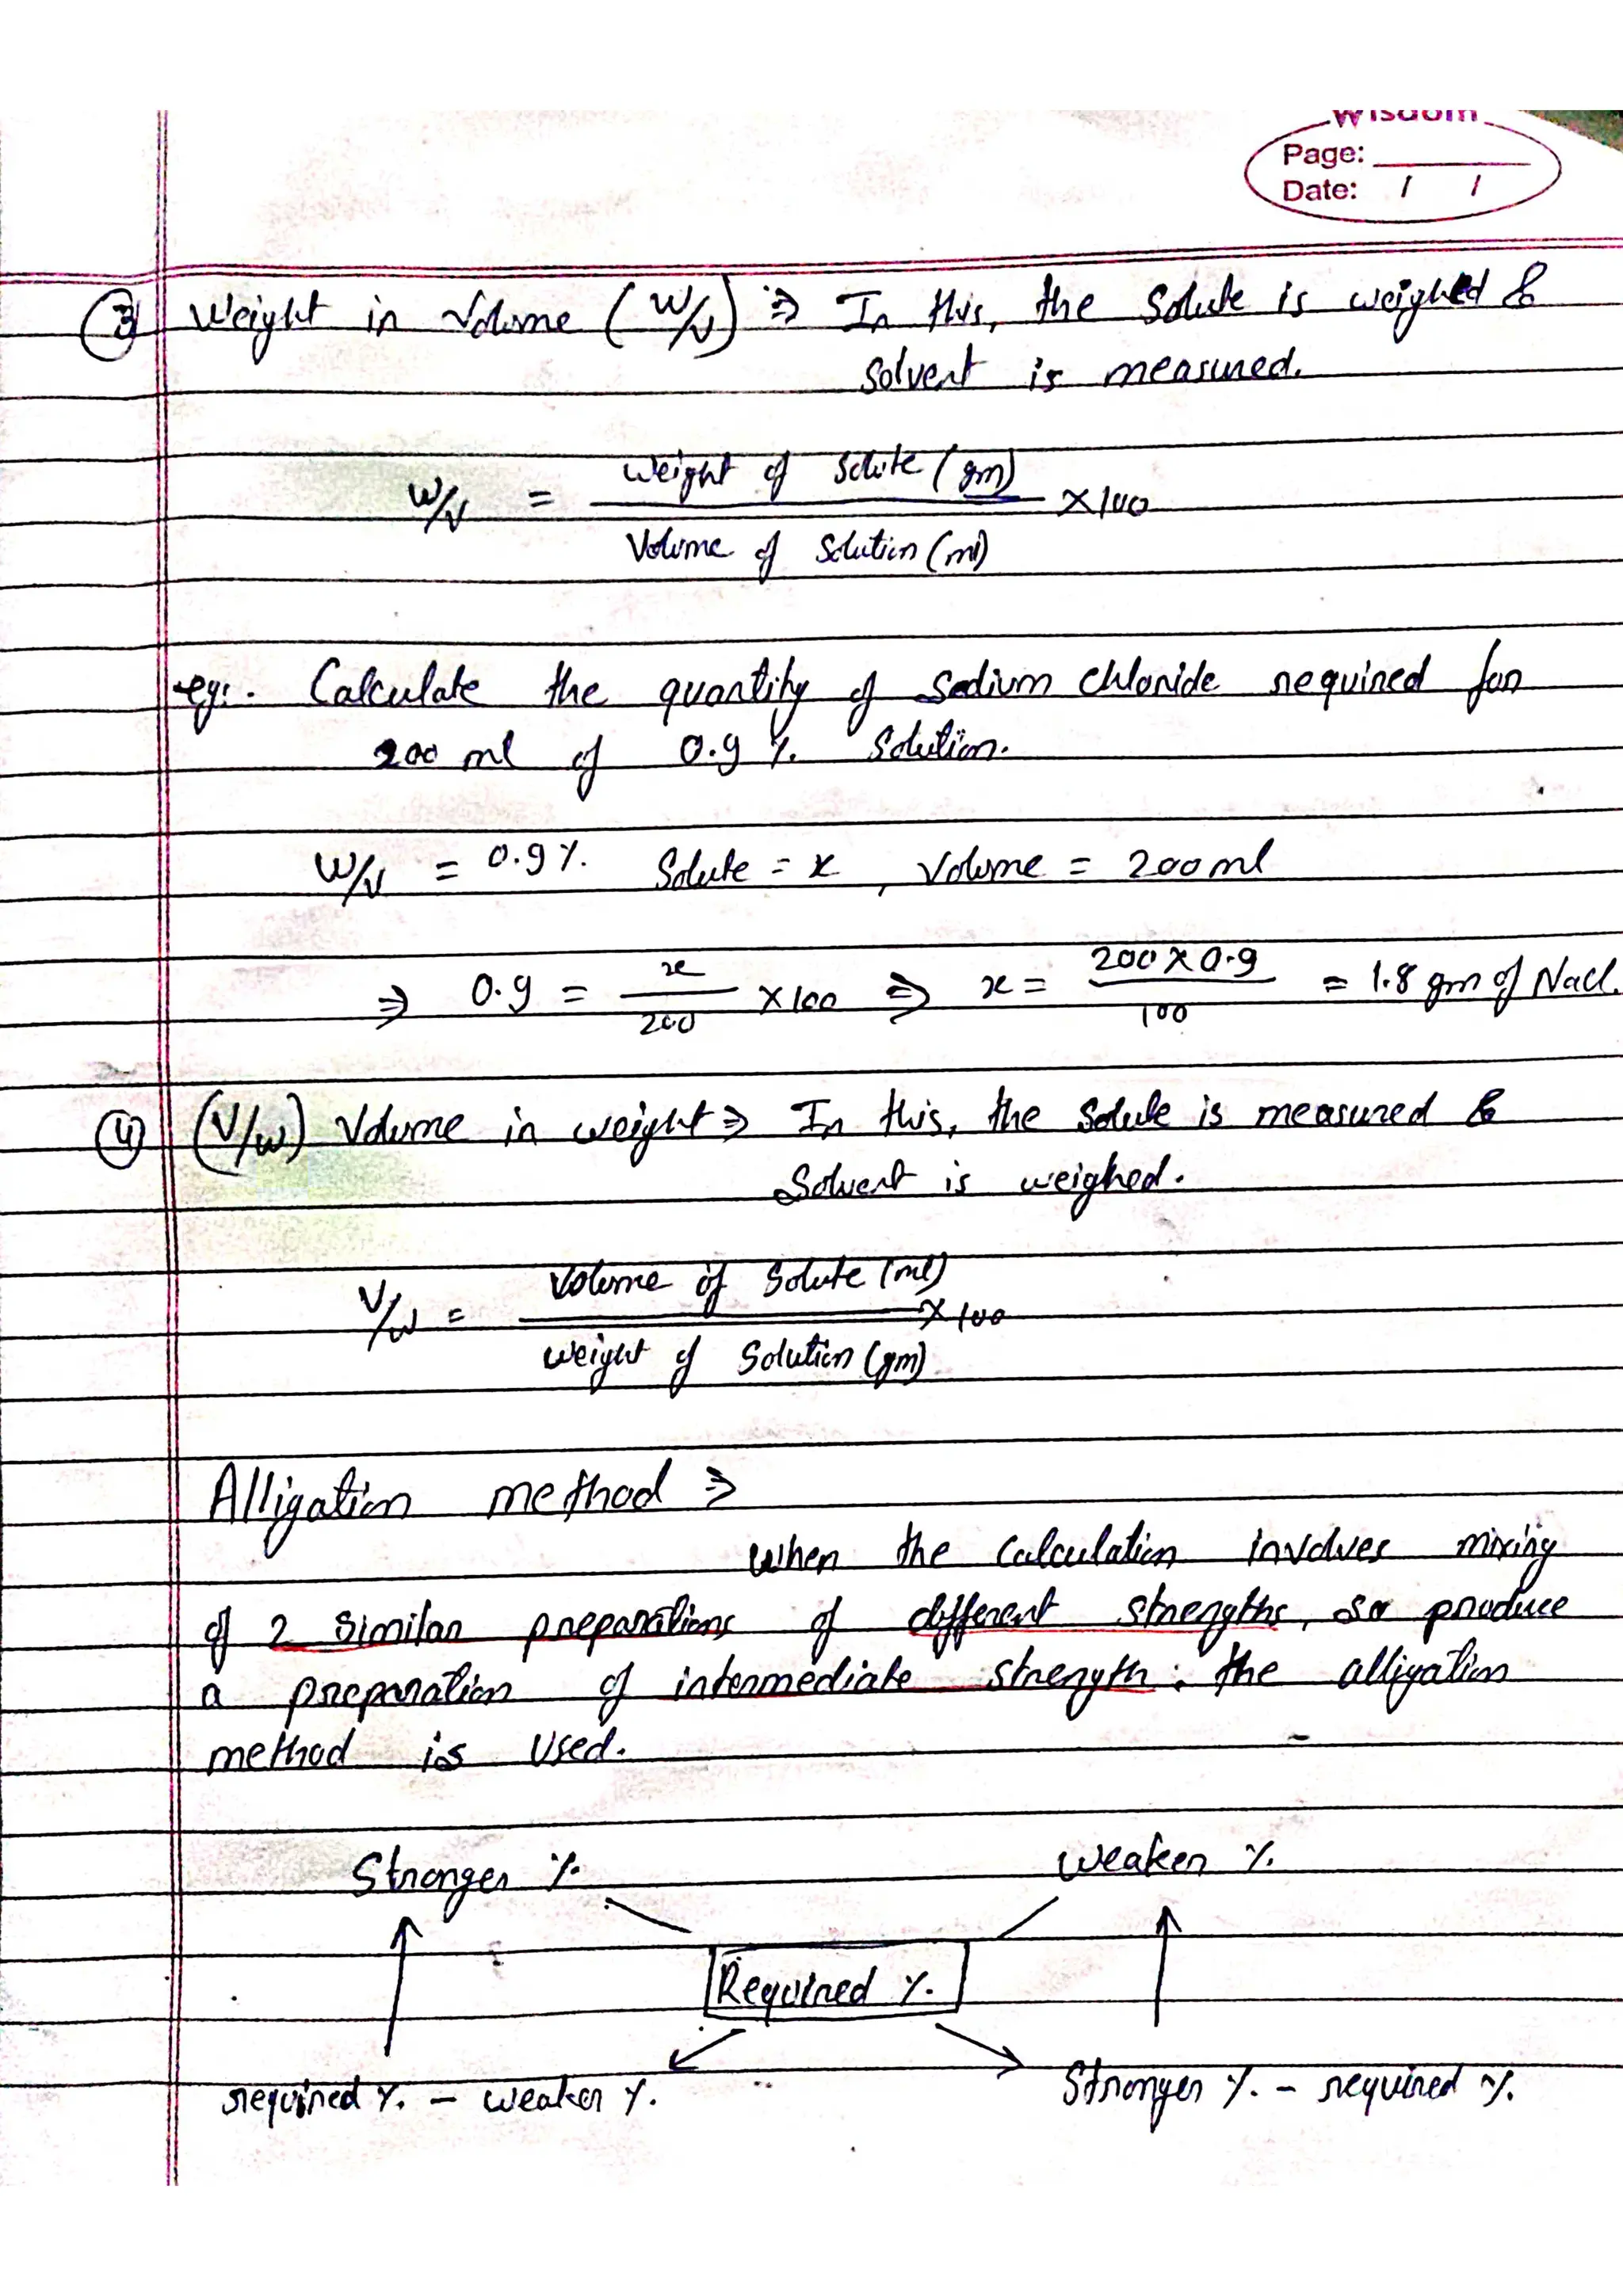 Wisdom
Page:
Date: / /
③ Weight in Volume (W/V) ⇒ In this, the Solute is weighed &
Solvent is measured.
W/V = Weight of Solute (gm) / Volume of Solution (ml) × 100
eg:. Calculate the quantity of Sodium Chloride required for
200 ml of 0.9 % Solution.
W/V = 0.9 % Solute = x , Volume = 200 ml
⇒ 0.9 = x / 200 × 100 ⇒ x = 200 × 0.9 / 100 = 1.8 gm of NaCl.
④ (V/W) Volume in weight ⇒ In this, the Solute is measured &
Solvent is weighed.
V/W = Volume of Solute (ml) / Weight of Solution (gm) × 100
Alligation method ⇒
When the Calculation involves mixing
of 2 similar preparations of different strengths, so produce
a preparation of intermediate strength: the alligation
method is Used.
Stronger % Weaker %
Required %
required % - weaker % Stronger % - required %